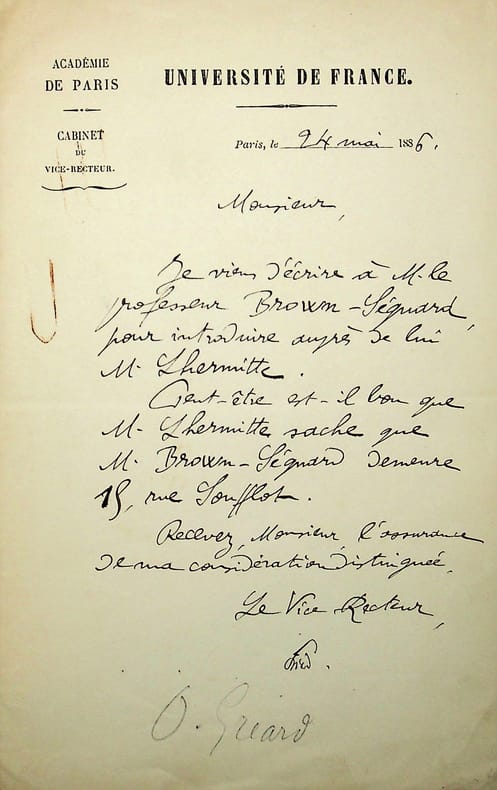 ACADÉMIE
DE PARIS
CABINET
DU
VICE-RECTEUR.
UNIVERSITÉ DE FRANCE.
Paris, le 24 mai 1886.
Monsieur,
Je viens d'écrire à M. le
professeur Brown-Séquard,
pour introduire auprès de lui
M. Lhermitte.
Peut-être est-il bon que
M. Lhermitte sache que
M. Brown-Séquard demeure
15, rue Soufflot.
Recevez, Monsieur, l'assurance
de ma considération distinguée.
Le Vice Recteur,
O. Gréard